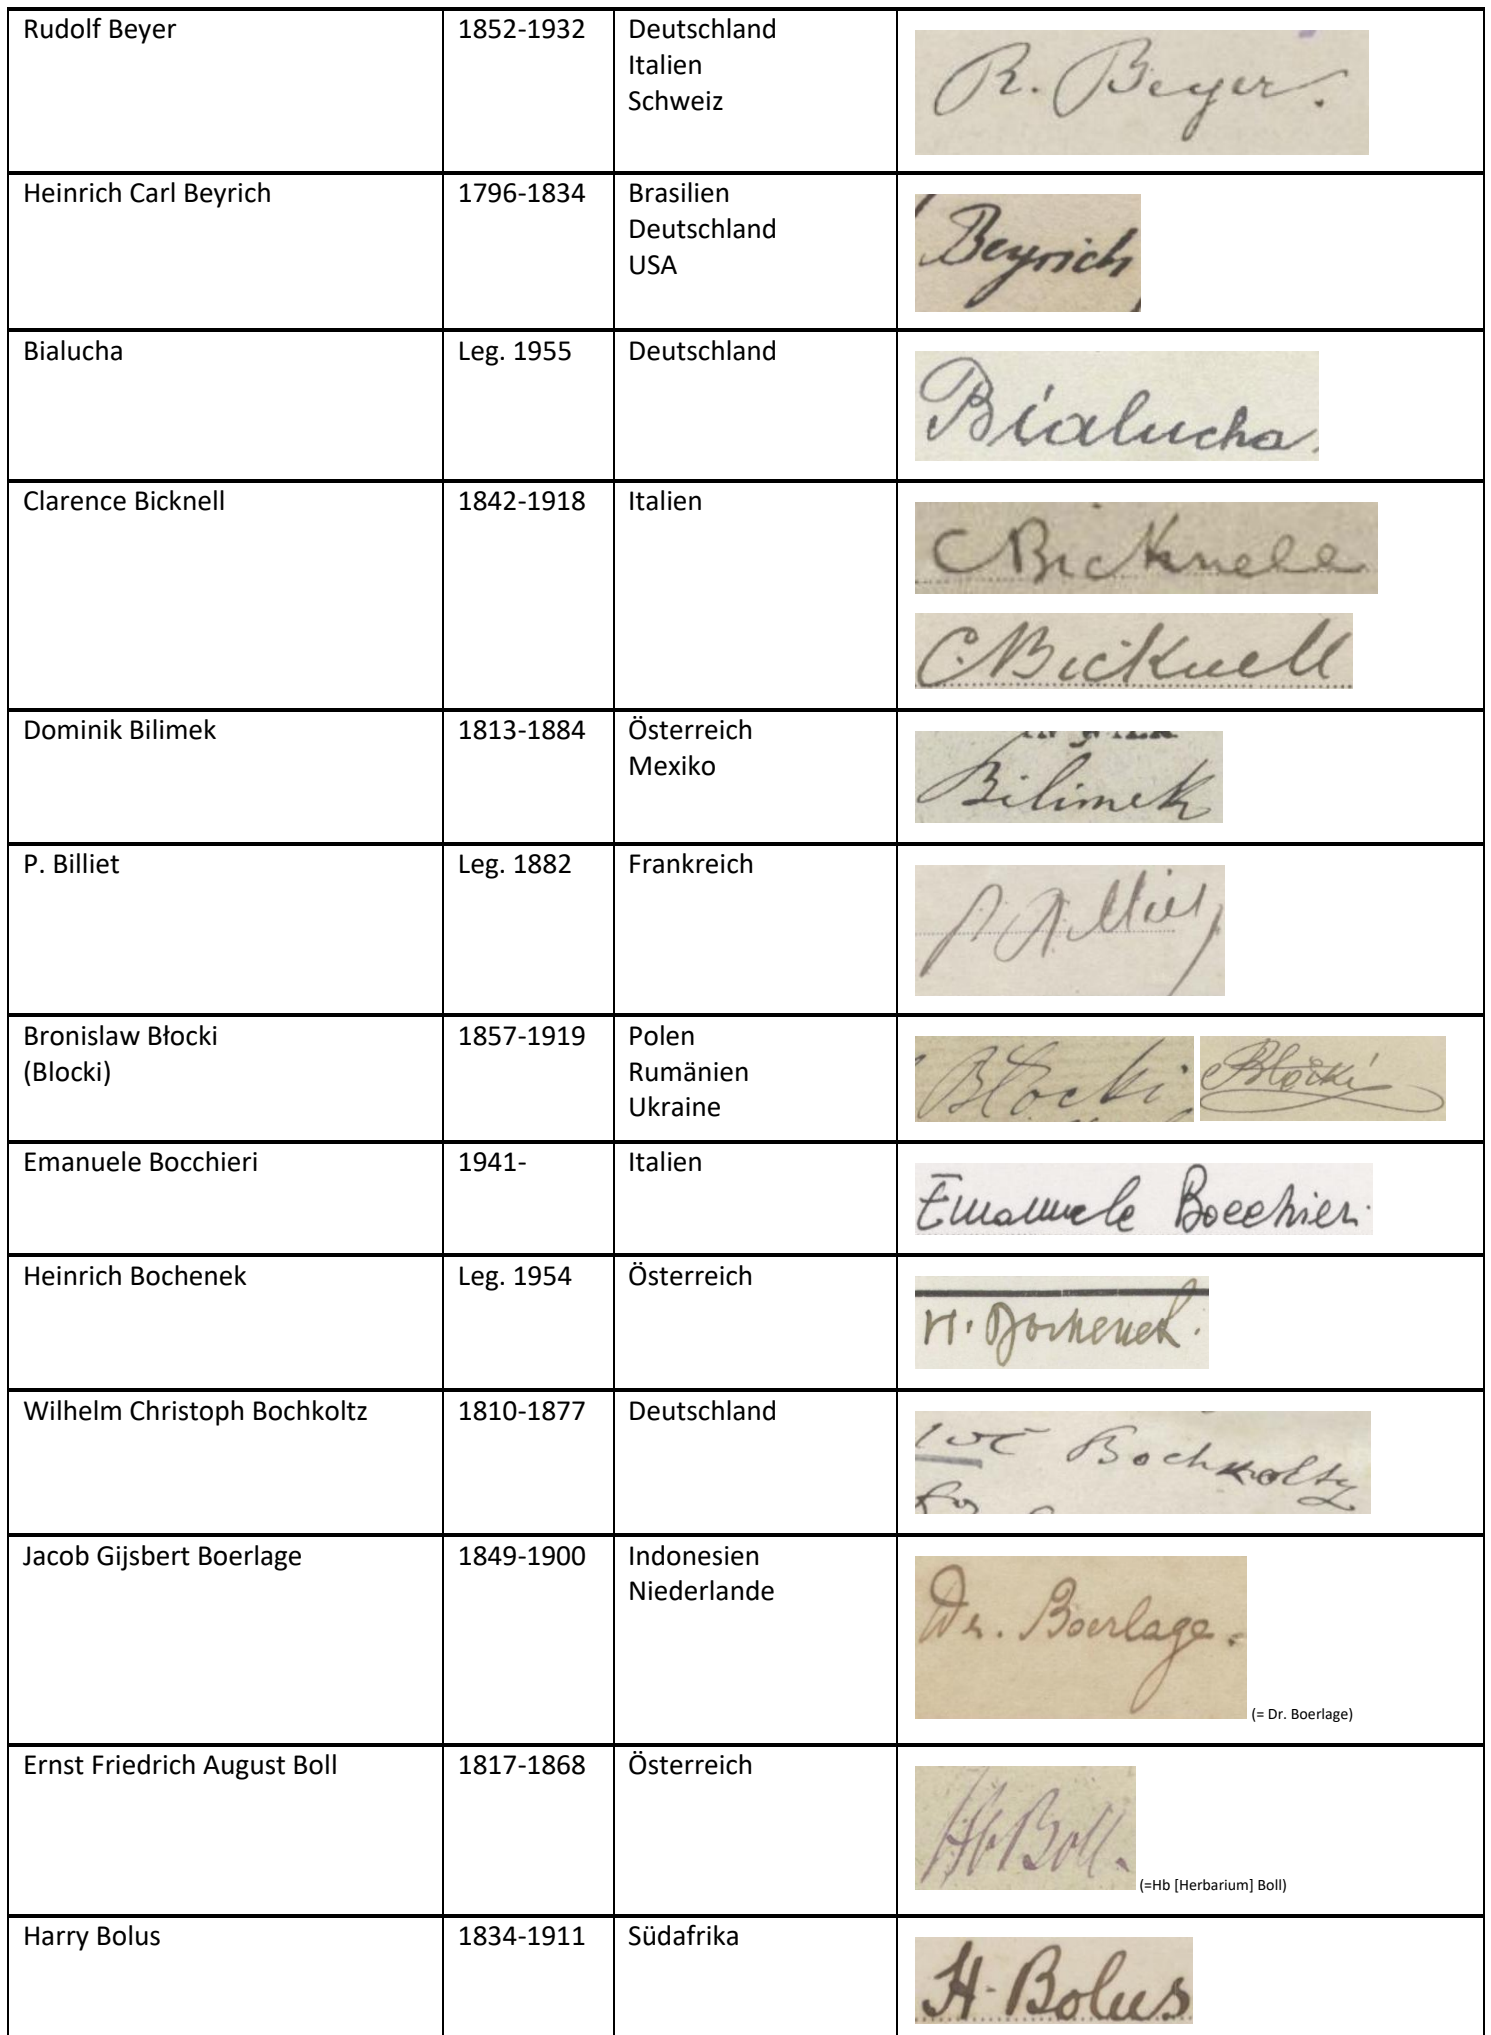 Rudolf Beyer
1852-1932
Deutschland
Italien
Schweiz
R. Beyer.
Heinrich Carl Beyrich
1796-1834
Brasilien
Deutschland
USA
Beyrich
Bialucha
Leg. 1955
Deutschland
Bialucha
Clarence Bicknell
1842-1918
Italien
C Bicknell
C. Bicknell
Dominik Bilimek
1813-1884
Österreich
Mexiko
Bilimek
P. Billiet
Leg. 1882
Frankreich
P. Billiet
Bronislaw Błocki
(Blocki)
1857-1919
Polen
Rumänien
Ukraine
Błocki
Błocki
Emanuele Bocchieri
1941-
Italien
Emanuele Bocchieri
Heinrich Bochenek
Leg. 1954
Österreich
H. Bochenek.
Wilhelm Christoph Bochkoltz
1810-1877
Deutschland
Bochkoltz
Jacob Gijsbert Boerlage
1849-1900
Indonesien
Niederlande
Dr. Boerlage.
(= Dr. Boerlage)
Ernst Friedrich August Boll
1817-1868
Österreich
Hb Boll.
(=Hb [Herbarium] Boll)
Harry Bolus
1834-1911
Südafrika
H. Bolus